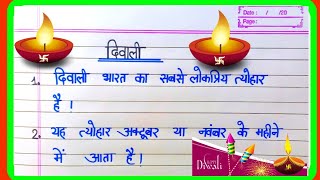 Date: / /20
Page:
दिवाली
1. दिवाली भारत का सबसे लोकप्रिय त्योहार
है।
2. यह त्योहार अक्टूबर या नवंबर के महीने
में आता है।
Happy
Diwali